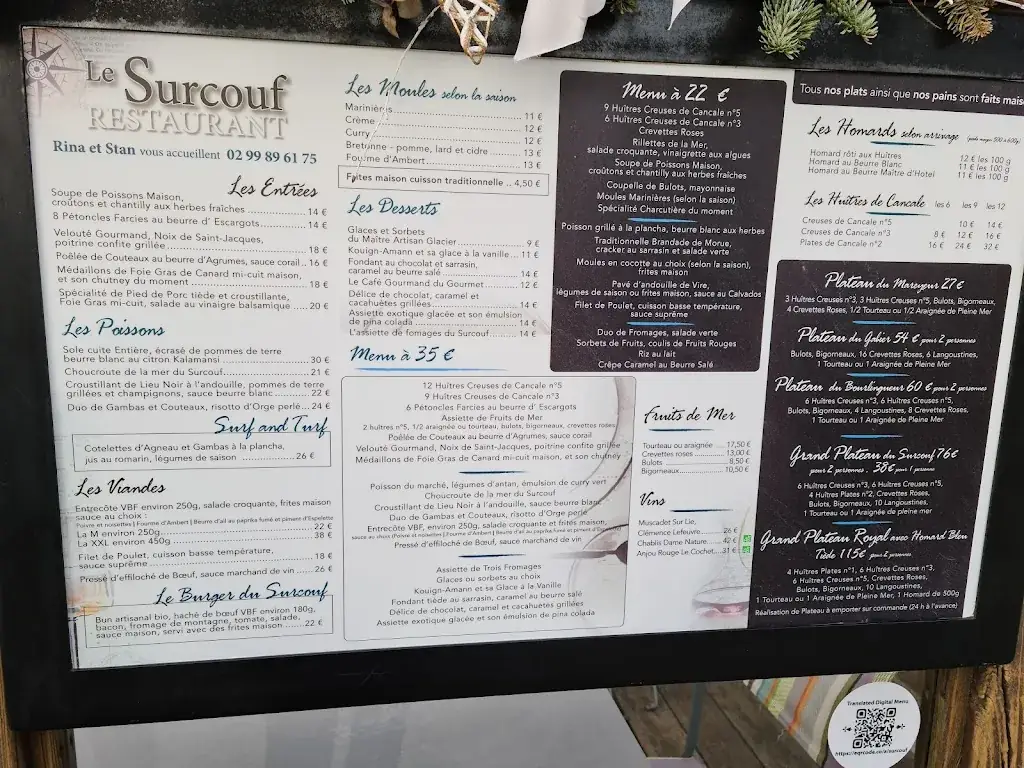 Le Surcouf
RESTAURANT
Rina et Stan vous accueillent 02 99 89 61 75
Les Entrées
Soupe de Poissons Maison,
croûtons et chantilly aux herbes fraîches 14 €
8 Pétoncles Farcies au beurre d' Escargots 14 €
Velouté Gourmand, Noix de Saint-Jacques,
poitrine confite grillée 18 €
Poêlée de Couteaux au beurre d'Agrumes, sauce corail.. 16 €
Médaillons de Foie Gras de Canard mi-cuit maison,
et son chutney du moment 18 €
Spécialité de Pied de Porc tiède et croustillante,
Foie Gras mi-cuit, salade au vinaigre balsamique 20 €
Les Poissons
Sole cuite Entière, écrasé de pommes de terre
beurre blanc au citron Kalamansi 30 €
Choucroute de la mer du Surcouf 21 €
Croustillant de Lieu Noir à l'andouille, pommes de terre
grillées et champignons, sauce beurre blanc 22 €
Duo de Gambas et Couteaux, risotto d'Orge perlé... 24 €
Surf and Turf
Cotelettes d'Agneau et Gambas à la plancha,
jus au romarin, légumes de saison 26 €
Les Viandes
Entrecôte VBF environ 250g, salade croquante, frites maison
sauce au choix :
Poivre et noisettes | Fourme d'Ambert | Beurre d'ail au paprika fumé et piment d'Espelette
La M environ 250g 22 €
La XXL environ 450g 38 €
Filet de Poulet, cuisson basse température,
sauce suprême 18 €
Pressé d'effiloché de Bœuf, sauce marchand de vin 26 €
Le Burger du Surcouf
Bun artisanal bio, haché de bœuf VBF environ 180g,
bacon, fromage de montagne, tomate, salade,
sauce maison, servi avec des frites maison 22 €
Les Moules selon la saison
Marinières 11 €
Crème 12 €
Curry 12 €
Bretonne - pomme, lard et cidre 13 €
Fourme d'Ambert 13 €
Frites maison cuisson traditionnelle .. 4,50 €
Les Desserts
Glaces et Sorbets
du Maître Artisan Glacier 9 €
Kouign-Amann et sa glace à la vanille 11 €
Fondant au chocolat et sarrasin,
caramel au beurre salé 14 €
Le Café Gourmand du Gourmet 12 €
Délice de chocolat, caramel et
cacahuètes grillées 14 €
Assiette exotique glacée et son émulsion
de pina colada 14 €
L'assiette de fomages du Surcouf 14 €
Menu à 35 €
12 Huîtres Creuses de Cancale n°5
9 Huîtres Creuses de Cancale n°3
6 Pétoncles Farcies au beurre d' Escargots
Assiette de Fruits de Mer
2 huîtres n°5, 1/2 araignée ou tourteau, bulots, bigorneaux, crevettes roses
Poêlée de Couteaux au beurre d'Agrumes, sauce corail
Velouté Gourmand, Noix de Saint-Jacques, poitrine confite grillée
Médaillons de Foie Gras de Canard mi-cuit maison, et son chutney
Poisson du marché, légumes d'antan, émulsion de curry vert
Choucroute de la mer du Surcouf
Croustillant de Lieu Noir à l'andouille, sauce beurre blanc
Duo de Gambas et Couteaux, risotto d'Orge perlé
Entrecôte VBF, environ 250g, salade croquante et frites maison,
sauce au choix (Poivre et noisettes | Fourme d'Ambert | Beurre d'ail au paprika fumé et piment d'Espelette)
Pressé d'effiloché de Bœuf, sauce marchand de vin
Assiette de Trois Fromages
Glaces ou sorbets au choix
Kouign-Amann et sa Glace à la Vanille
Fondant tiède au sarrasin, caramel au beurre salé
Délice de chocolat, caramel et cacahuetes grillées
Assiette exotique glacée et son émulsion de pina colada
Menu à 22 €
9 Huîtres Creuses de Cancale n°5
6 Huîtres Creuses de Cancale n°3
Crevettes Roses
Rillettes de la Mer,
salade croquante, vinaigrette aux algues
Soupe de Poissons Maison,
croûtons et chantilly aux herbes fraîches
Coupelle de Bulots, mayonnaise
Moules Marinières (selon la saison)
Spécialité Charcutière du moment
Poisson grillé à la plancha, beurre blanc aux herbes
Traditionnelle Brandade de Morue,
cracker au sarrasin et salade verte
Moules en cocotte au choix (selon la saison),
frites maison
Pavé d'andouille de Vire,
légumes de saison ou frites maison, sauce au Calvados
Filet de Poulet, cuisson basse température,
sauce suprême
Duo de Fromages, salade verte
Sorbets de Fruits, coulis de Fruits Rouges
Riz au lait
Crêpe Caramel au Beurre Salé
Fruits de Mer
Tourteau ou araignée 17,50 €
Crevettes roses 13,00 €
Bulots 8,50 €
Bigorneaux 10,50 €
Vins
Muscadet Sur Lie,
Clémence Lefeuvre 26 €
Chablis Dame Nature 42 €
Anjou Rouge Le Cochet 31 €
Tous nos plats ainsi que nos pains sont faits mais
Les Homards selon arrivage
Homard rôti aux Huîtres 12 € les 100 g
Homard au Beurre Blanc 11 € les 100 g
Homard au Beurre Maître d'Hotel 11 € les 100 g
Les Huîtres de Cancale les 6 les 9 les 12
Creuses de Cancale n°5 10 € 14 €
Creuses de Cancale n°3 8 € 12 € 16 €
Plates de Cancale n°2 16 € 24 € 32 €
Plateau du Mareyeur 27 €
3 Huîtres Creuses n°3, 3 Huîtres Creuses n°5, Bulots, Bigorneaux,
4 Crevettes Roses, 1/2 Tourteau ou 1/2 Araignée de Pleine Mer
Plateau du Gabier 54 € pour 2 personnes
Bulots, Bigorneaux, 16 Crevettes Roses, 6 Langoustines,
1 Tourteau ou 1 Araignée de Pleine Mer
Plateau du Bourlingueur 60 € pour 2 personnes
6 Huîtres Creuses n°3, 6 Huîtres Creuses n°5,
Bulots, Bigorneaux, 4 Langoustines, 8 Crevettes Roses,
1 Tourteau ou 1 Araignée de Pleine Mer
Grand Plateau du Surcouf 76 €
pour 2 personnes , 38 € pour 1 personne
6 Huîtres Creuses n°3, 6 Huîtres Creuses n°5,
4 Huîtres Plates n°2, Crevettes Roses,
Bulots, Bigorneaux, 10 Langoustines,
1 Tourteau ou 1 Araignée de pleine mer
Grand Plateau Royal avec Homard Bleu
Tiède 115 € pour 2 personnes
4 Huîtres Plates n°1, 6 Huîtres Creuses n°3,
6 Huîtres Creuses n°5, Crevettes Roses,
Bulots, Bigorneaux, 10 Langoustines,
1 Tourteau ou 1 Araignée de Pleine Mer, 1 Homard de 500g
Réalisation de Plateau à emporter sur commande (24 h à l'avance)
Translated Digital Menu
https://eqrcode.co/a/surcouf